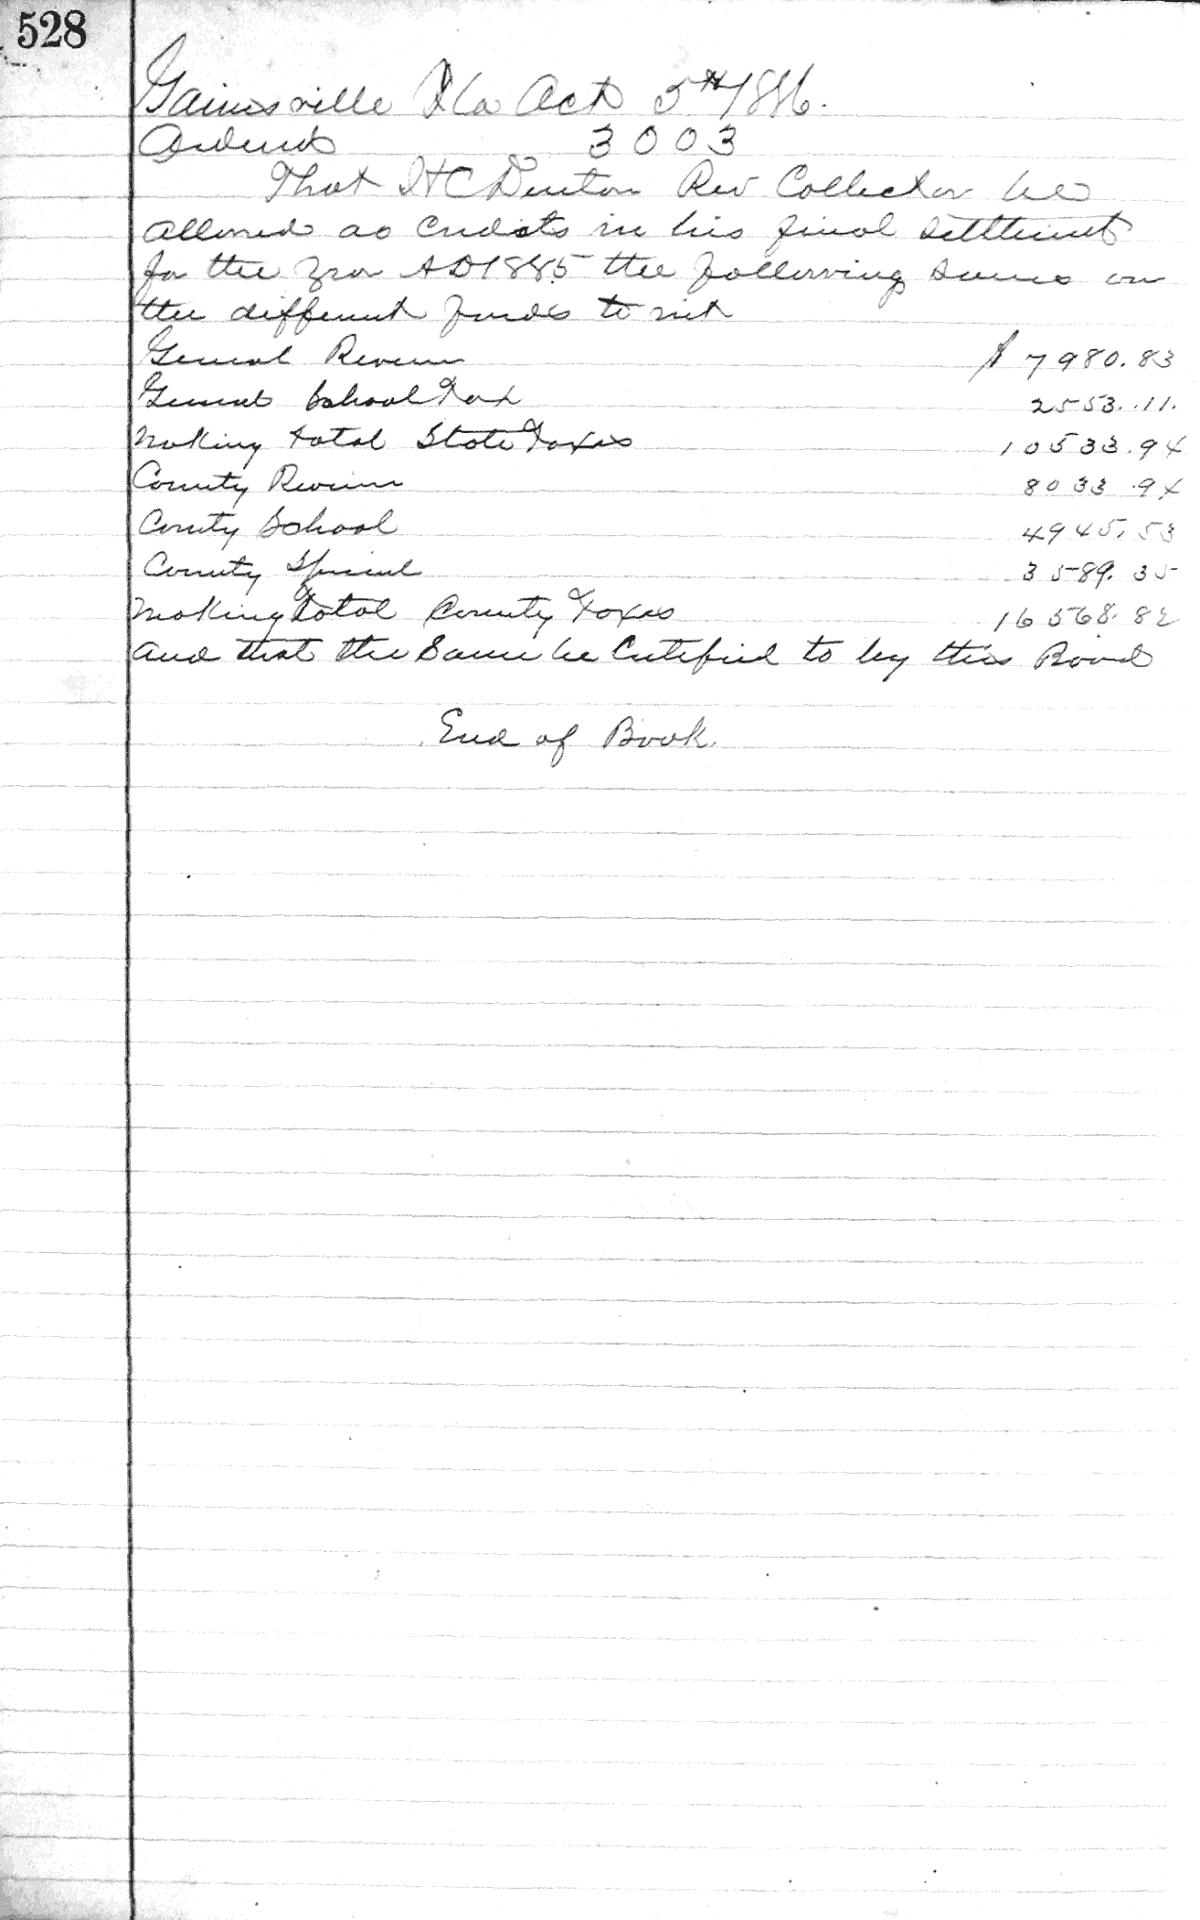 528
Gainesville Fla Oct 5th 1886.
Ordered 3003
That H C Denton Rev Collector be
allowed as credits in his final settlement
for the year AD 1885 the following sums on
the different funds to wit
General Revenue $ 7980.83
General School Tax 2553.11.
making total State Taxes 10533.94
County Revenue 8033.94
County School 4945.53
County Special 3589.35
making total County Taxes 16568.82
and that the same be Certified to by this Board
End of Book.